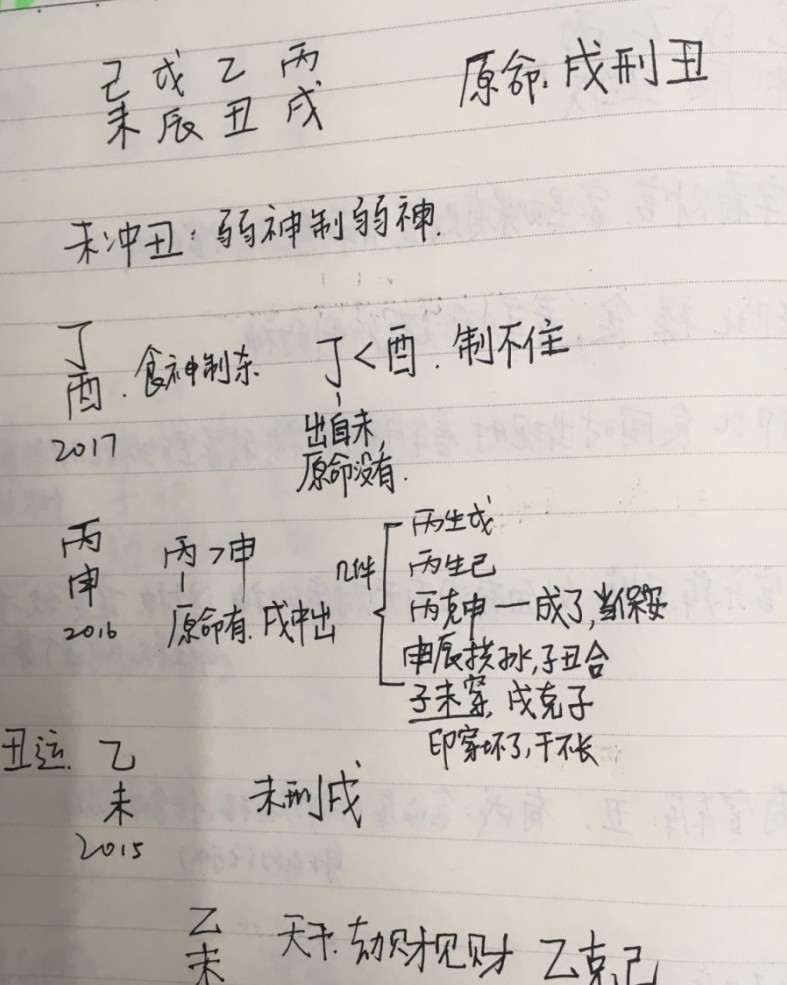 己 戊 乙 丙
未 辰 丑 戌
原命.戌刑丑
未冲丑:弱神制弱神.
丁
酉.食神制杀
2017
丁<酉.制不住
出自未,
原命没有.
丙
申
2016
丙>申
原命有.戌中出
几件
丙生戊
丙生己
丙克申—成了,当保安
申辰拱水,子丑合
子未穿,戊克子
印穿坏了,干不长
丑运.
乙
未
2015
未刑戌
乙
未
天干.劫财见财 乙克己